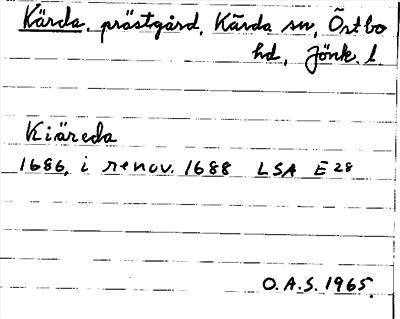 Kärda, prästgård, Kärda sn, Östbo
hd, Jönk. l.
Kiäreda
1686, i renov. 1688 LSA E 28
O.A.S. 1965.